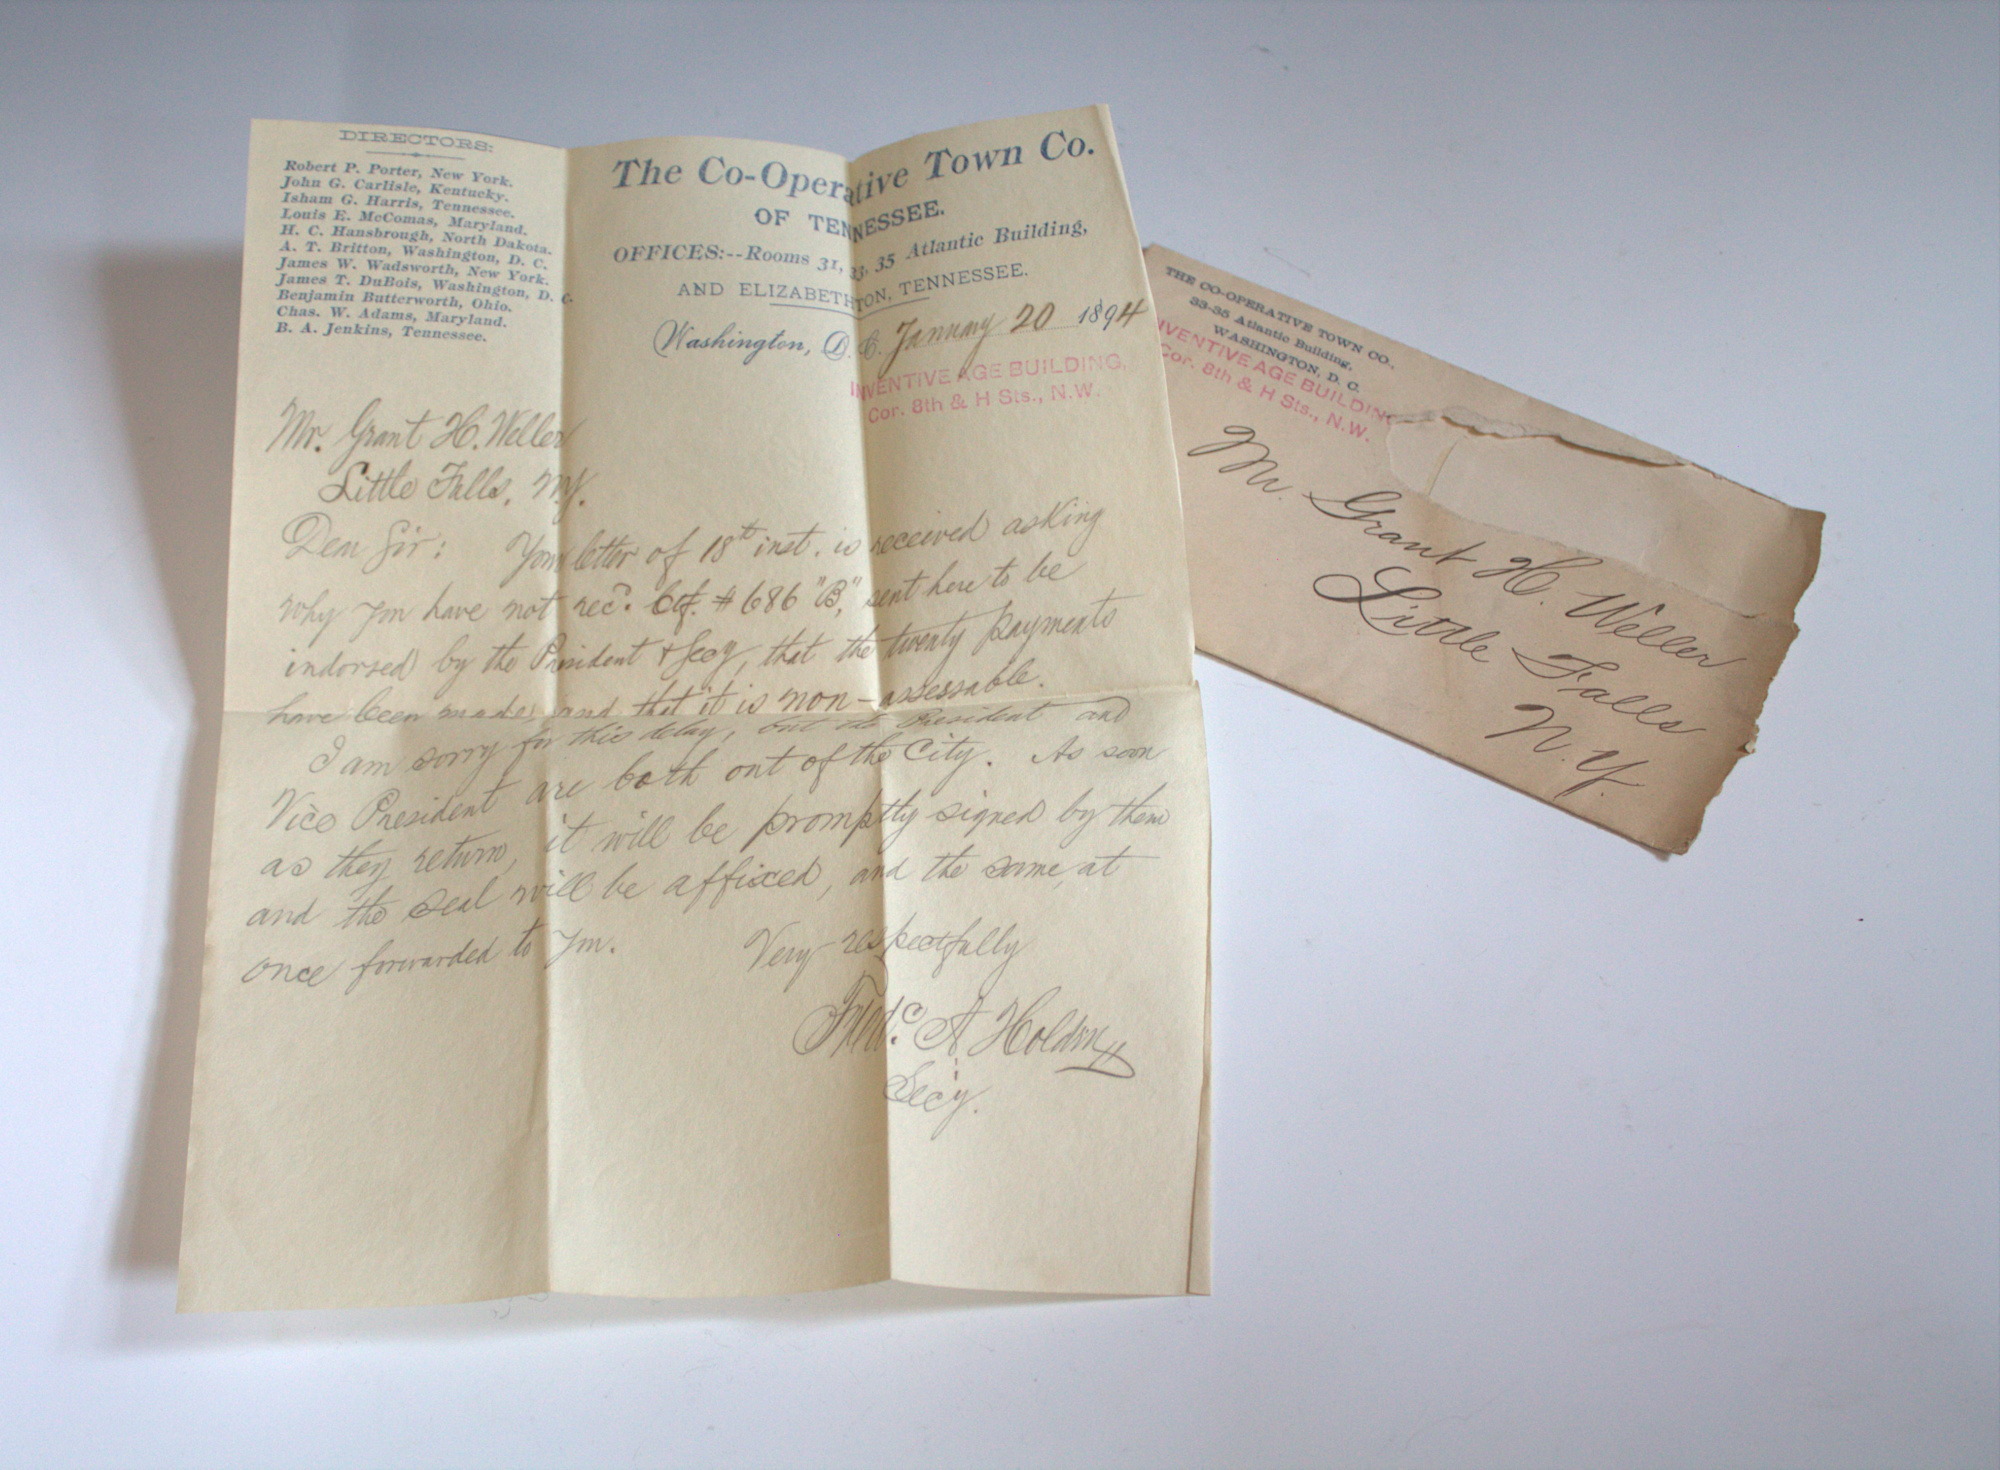 DIRECTORS:
Robert P. Porter, New York.
John G. Carlisle, Kentucky.
Isham G. Harris, Tennessee.
Louis E. McComas, Maryland.
H. C. Hansbrough, North Dakota.
A. T. Britton, Washington, D. C.
James W. Wadsworth, New York.
James T. DuBois, Washington, D. C.
Benjamin Butterworth, Ohio.
Chas. W. Adams, Maryland.
B. A. Jenkins, Tennessee.
The Co-Operative Town Co.
OF TENNESSEE.
OFFICES:--Rooms 31, 33, 35 Atlantic Building,
AND ELIZABETHTON, TENNESSEE.
Washington, D. C. January 20 1894
INVENTIVE AGE BUILDING,
Cor. 8th & H Sts., N.W.
Mr. Grant H. Weller
Little Falls, N.Y.
Dear Sir: Your letter of 18th inst. is received asking
why you have not rec'd. Ctf. # 686 "B", sent here to be
indorsed by the President & Secy, that the twenty payments
have been made, and that it is non-assessable.
I am sorry for this delay, but the President and
Vice President are both out of the City. As soon
as they return, it will be promptly signed by them
and the seal will be affixed, and the same, at
once forwarded to you.
Very respectfully
Fred'c. A Holden
Sec'y.
THE CO-OPERATIVE TOWN CO.,
33-35 Atlantic Building,
WASHINGTON, D. C.
INVENTIVE AGE BUILDING
Cor. 8th & H Sts., N.W.
Mr. Grant H. Weller
Little Falls
N.Y.